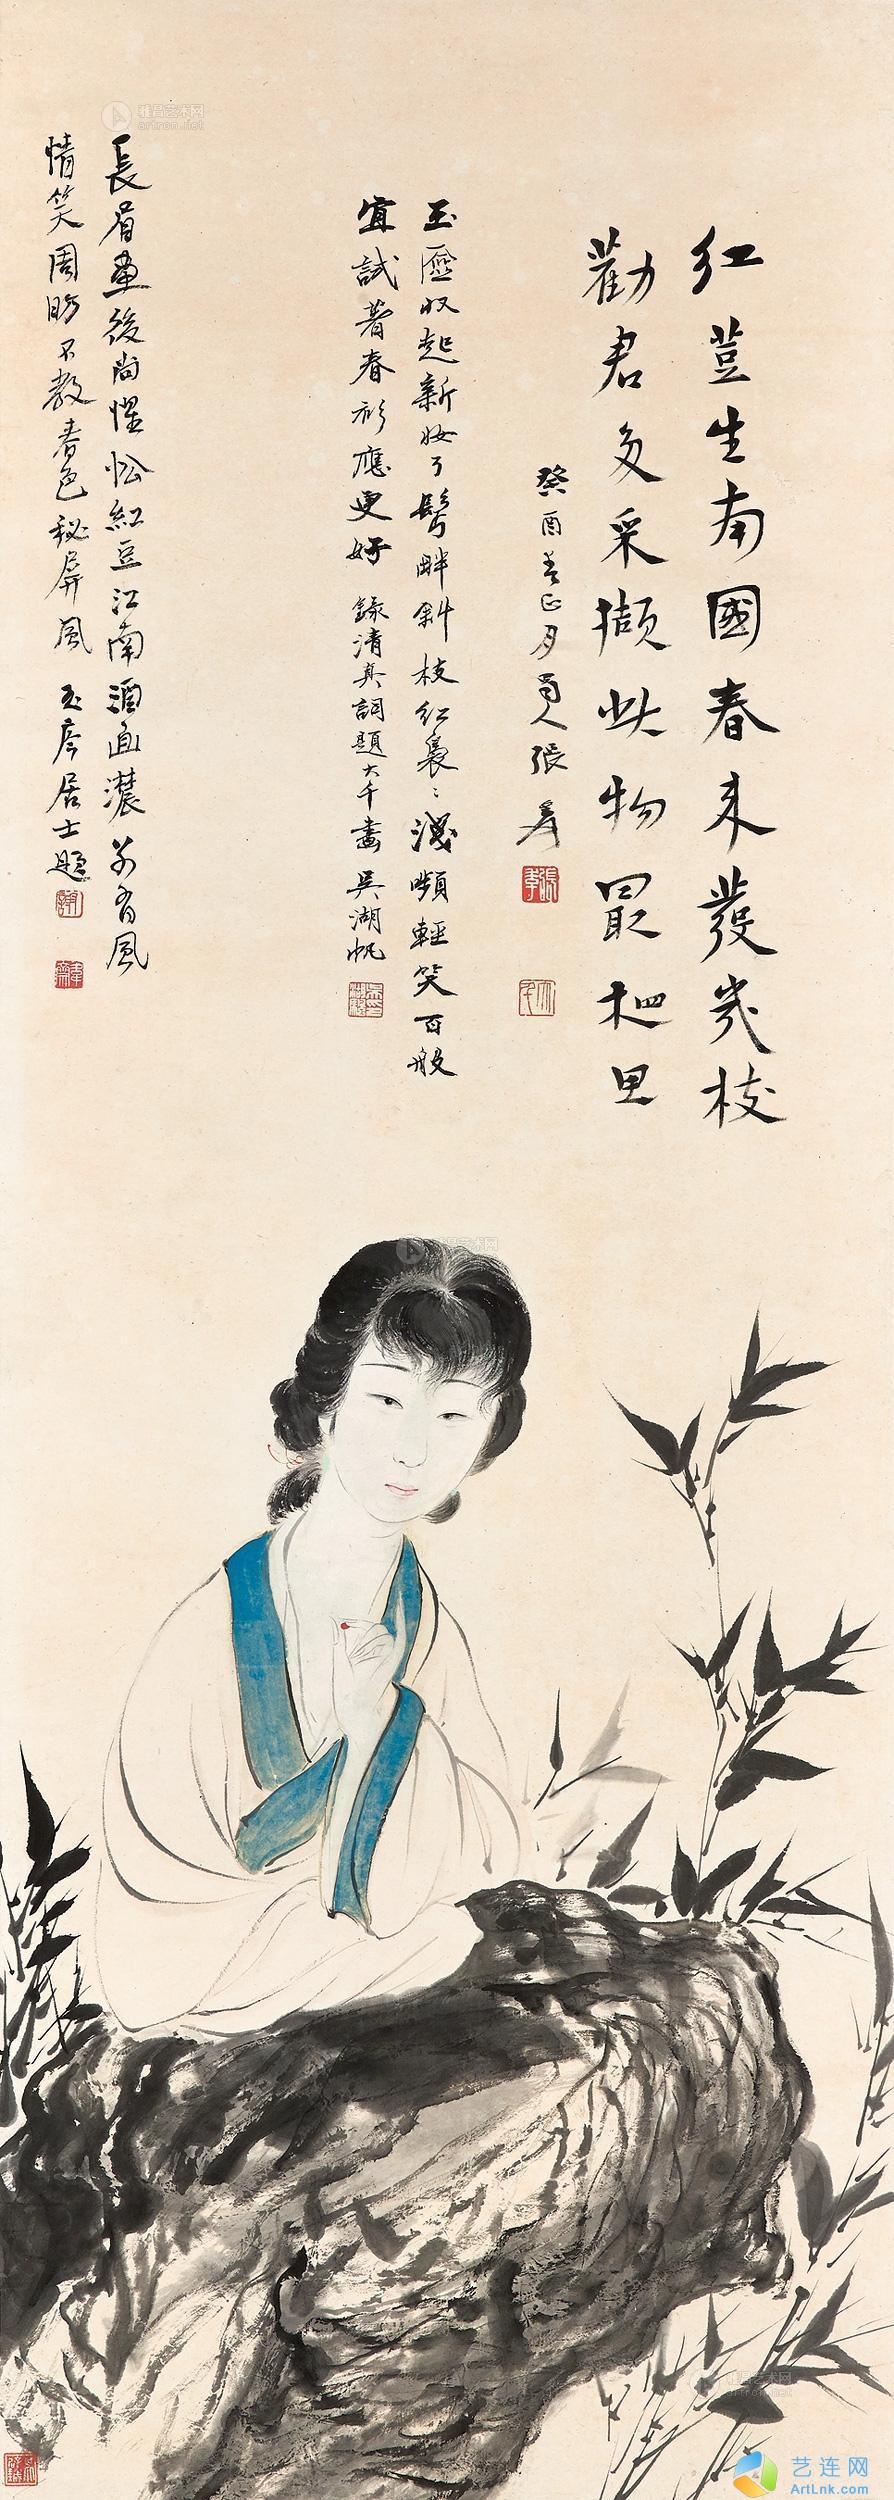 紅荳生南國春来發幾枝
勸君多采擷此物最相思
癸酉春正月蜀人張爰
張爰
大千
玉匳收起新妝了鬢畔斜枝紅裊〻淺顰輕笑百般
宜試著春衫應更好 錄清真詞題大千畫 吳湖帆
長眉畫後尚惺忪紅豆江南酒面濃別有風
情笑周昉不教春色秘屏風 玉岑居士題
雅昌艺术网
artron.net
艺连网
ArtLnk.com